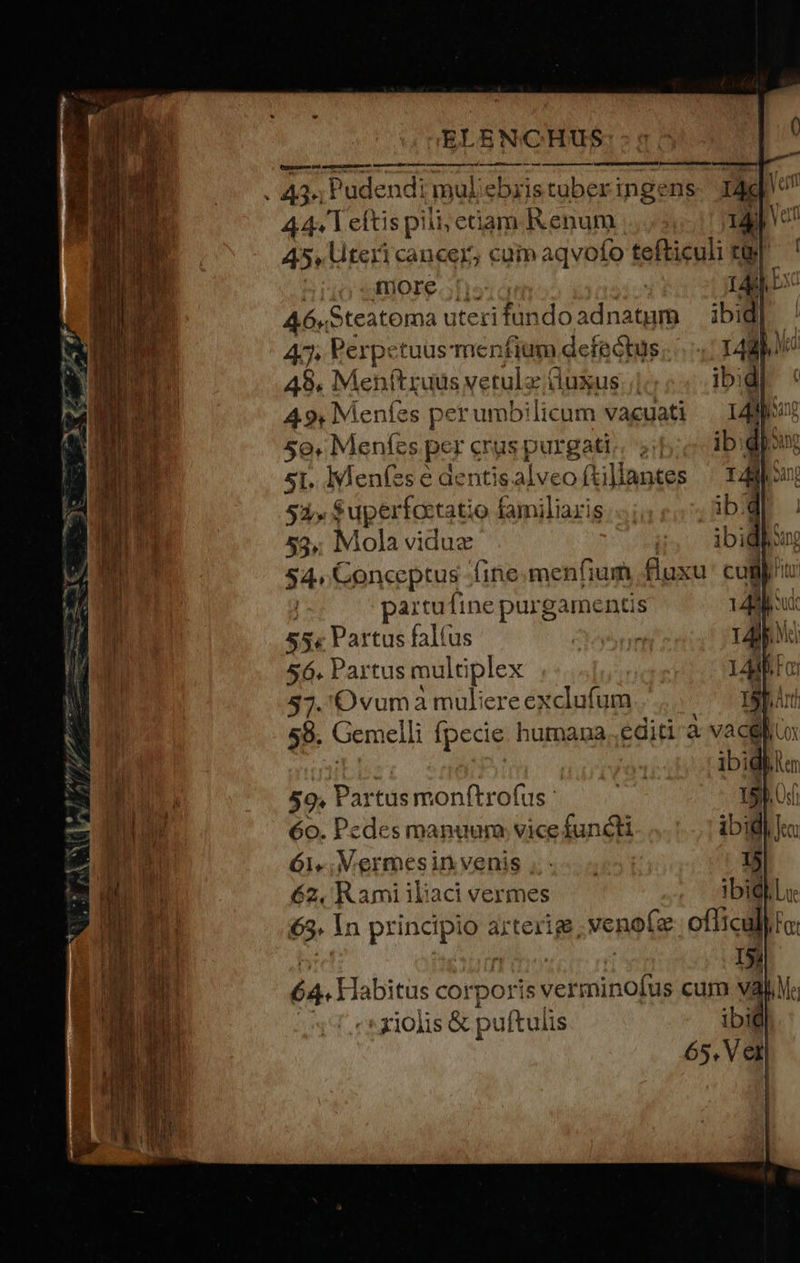 ELENCHUS
43. Pudendi muliebris tuber ingens
44. Teſtis pili, etiam Renum
45. Uteri cancer, cum aqvoſo teſticuli tu
more
46. Steatoma uteri fundo adnatum ibid
47. Perpetuus menſium defectus
48. Menſtruus vetulæ fluxus ibid
49. Menſes per umbilicum vacuati
50. Menſes per crus purgati ibid
51. Menſes è dentis alveo ſtillantes
52. Superfœtatio familiaris ibid
53. Mola viduæ ibid
54. Conceptus ſine menſium fluxu cum
partu ſine purgamentis
55. Partus falſus
56. Partus multiplex
57. Ovum à muliere excluſum
58. Gemelli ſpecie humana editi à vacc
ibid
59. Partus monſtroſus
60. Pedes manuum vice functi ibid
61. Vermes in venis
62. Rami iliaci vermes ibid
63. In principio arteriæ venoſæ officul
64. Habitus corporis verminoſus cum va
riolis & puſtulis ibid
65. Ver